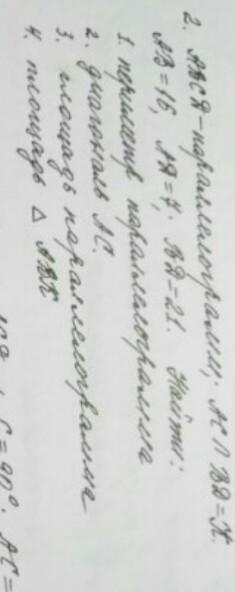 2. ABCD - параллелограмм; AC ∩ BD = K.
AB = 16, AD = 7. BD = 21. Найти:
1. периметр параллелограмма
2. диагональ AC.
3. площадь параллелограмма
4. площадь △ ABK
C = 90°. AC =